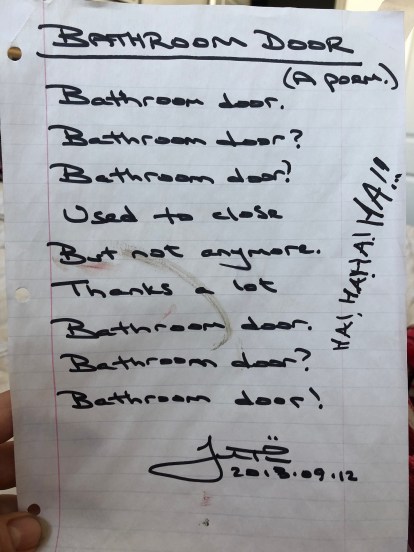 BATHROOM DOOR
(A POEM.)
Bathroom door.
Bathroom door?
Bathroom door?
Used to close
But not anymore.
Thanks a lot
Bathroom door.
Bathroom door?
Bathroom door!
HA! HAHA! HA!!...
2018.09.12